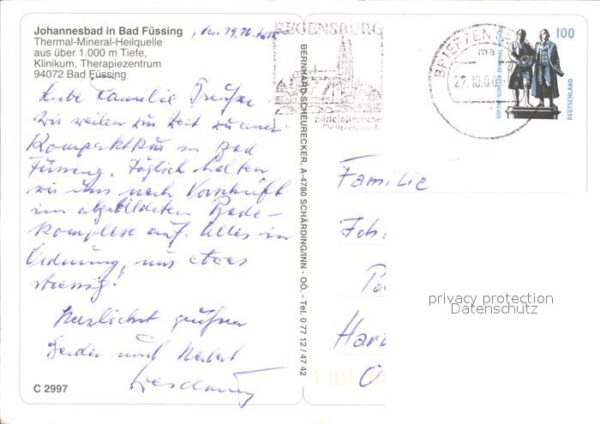 Johannesbad in Bad Füssing
Thermal-Mineral-Heilquelle
aus über 1.000 m Tiefe,
Klinikum, Therapiezentrum
94072 Bad Füssing
Liebe Familie
Wir weilen zur Zeit zu einer
Kompaktkur in Bad
Füssing. Täglich halten
wir uns nach Vorschrift
im abgebildeten Bade-
komplex auf. Alles in
Ordnung, nur etwas
stressig!
Herzlichst grüßen
und Herbert
C 2997
BERNHARD SCHEURECKER, A-4780 SCHÄRDING/INN - OÖ. - Tel. 0 77 12 / 47 42
REGENSBURG
BRIEFZENTRUM
100
DEUTSCHLAND
Familie
Joh
Po
Har
privacy protection
Datenschutz